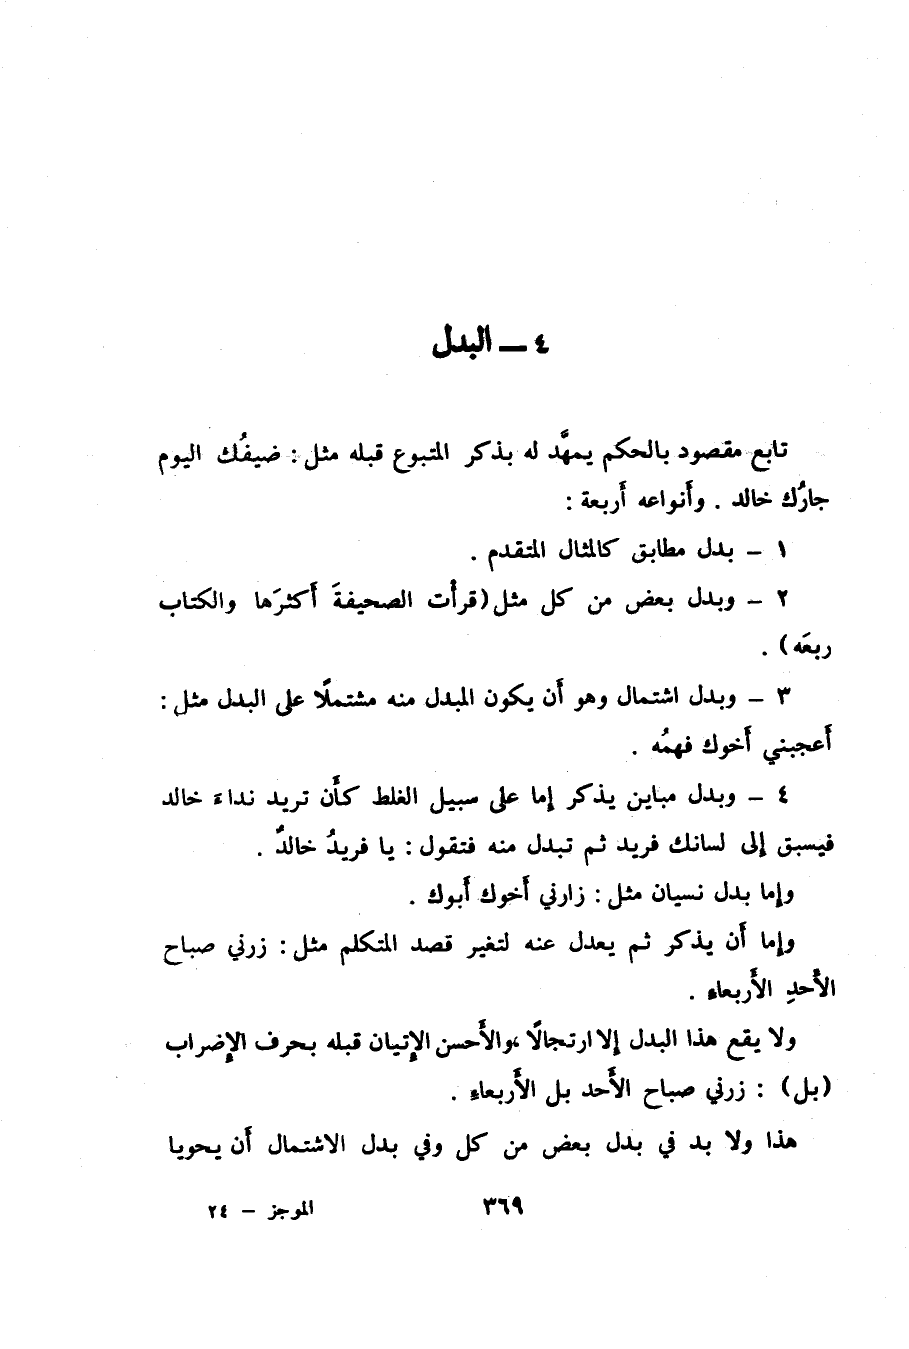 ٤ – البدل
تابع مقصود بالحكم يمهَّد له بذكر المتبوع قبله مثل : ضيفُك اليوم
جارُك خالد . وأَنواعه أَربعة :
١ – بدل مطابق كالمثال المتقدم .
٢ – وبدل بعض من كل مثل (قرأْت الصحيفةَ أَكثرَها والكتاب
ربعَه) .
٣ – وبدل اشتمال وهو أَن يكون المبدل منه مشتملًا على البدل مثل :
أَعجبني أَخوك فهمُه .
٤ – وبدل مباين يذكر إما على سبيل الغلط كأَن تريد نداءَ خالد
فيسبق إلى لسانك فريد ثم تبدل منه فتقول : يا فريدُ خالدُ .
وإما بدل نسيان مثل : زارني أَخوك أَبوك .
وإما أَن يذكر ثم يعدل عنه لتغير قصد المتكلم مثل : زرني صباح
الأَحدِ الأَربعاء .
ولا يقع هذا البدل إلا ارتجالًا ،والأَحسن الإتيان قبله بحرف الإضراب
(بل) : زرني صباح الأَحد بل الأَربعاءِ .
هذا ولا بد في بدل بعض من كل وفي بدل الاشتمال أَن يحويا
٣٦٩
الموجز – ٢٤